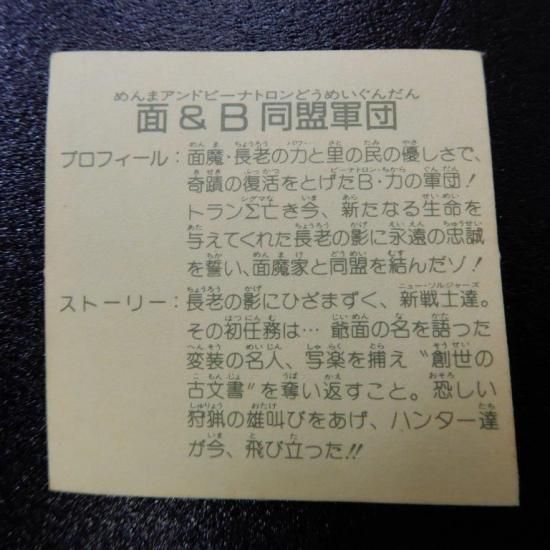 めんまアンドビーナトロンどうめいぐんだん
面&B同盟軍団
プロフィール：面魔・長老の力と里の民の優しさで、
奇蹟の復活をとげたB・力の軍団！
トランΣ亡き今、新たなる生命を
与えてくれた長老の影に永遠の忠誠
を誓い、面魔家と同盟を結んだゾ！
ストーリー：長老の影にひざまずく、新戦士達。
その初任務は…爺面の名を語った
変装の名人、写楽を捕え〝創世の
古文書〟を奪い返すこと。恐しい
狩猟の雄叫びをあげ、ハンター達
が今、飛び立った!!